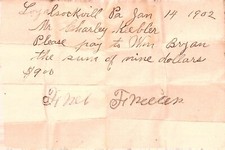 Loyalsockvill Pa Jan 14 1902
Mr Charley Keebler
Please pay to Wm Bryan
the sum of nine dollars
$9.00